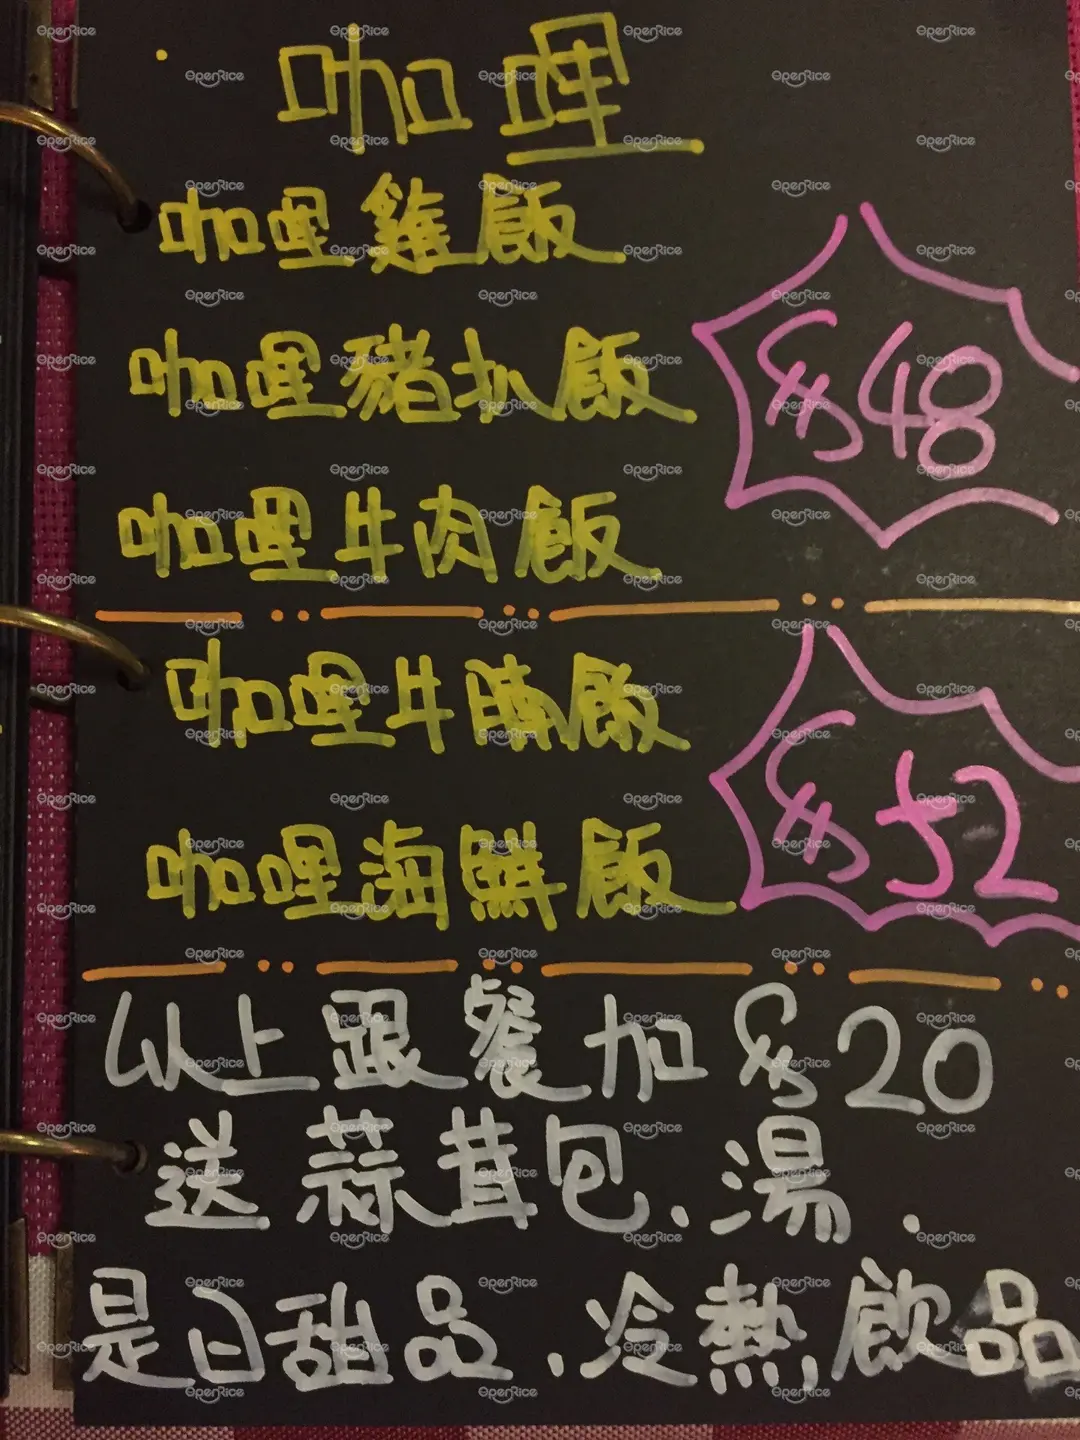 咖哩
咖哩雞飯
咖哩豬扒飯
$48
咖哩牛肉飯
咖哩牛腩飯
$52
咖哩海鮮飯
以上跟餐加$20
送蒜茸包.湯.
是日甜品.冷熱飲品